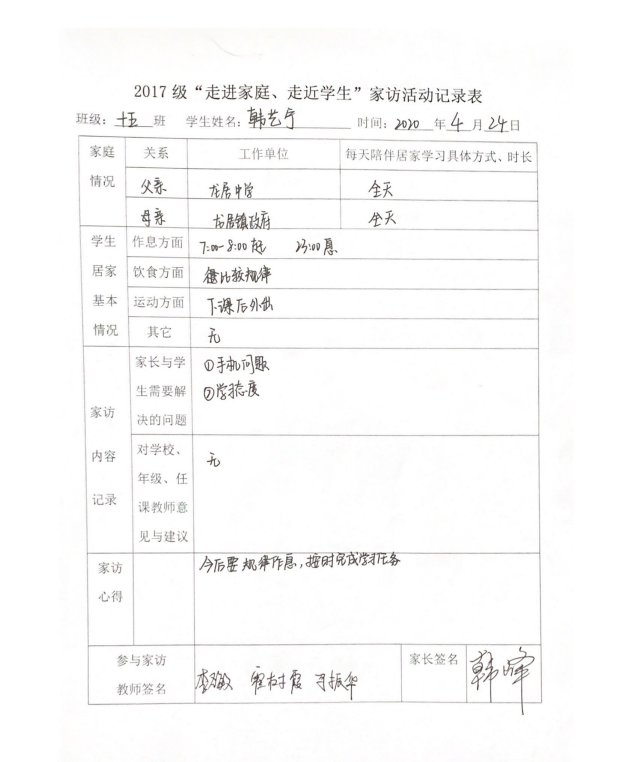 2017级“走进家庭、走近学生”家访活动记录表
班级：十五班 学生姓名：韩艺宁 时间：2020年4月24日
家庭情况 关系 工作单位 每天陪伴居家学习具体方式、时长
父亲 龙居中学 全天
母亲 龙居镇政府 全天
学生居家基本情况 作息方面 7:00-8:00起 23:00息
饮食方面 比较规律
运动方面 下课后外出
其它 无
家访内容记录 家长与学生需要解决的问题 ①手机问题
②学习态度
对学校、年级、任课教师意见与建议 无
家访心得 今后要规律作息，按时完成学习任务
参与家访教师签名 霍树霞 家长签名 韩峰